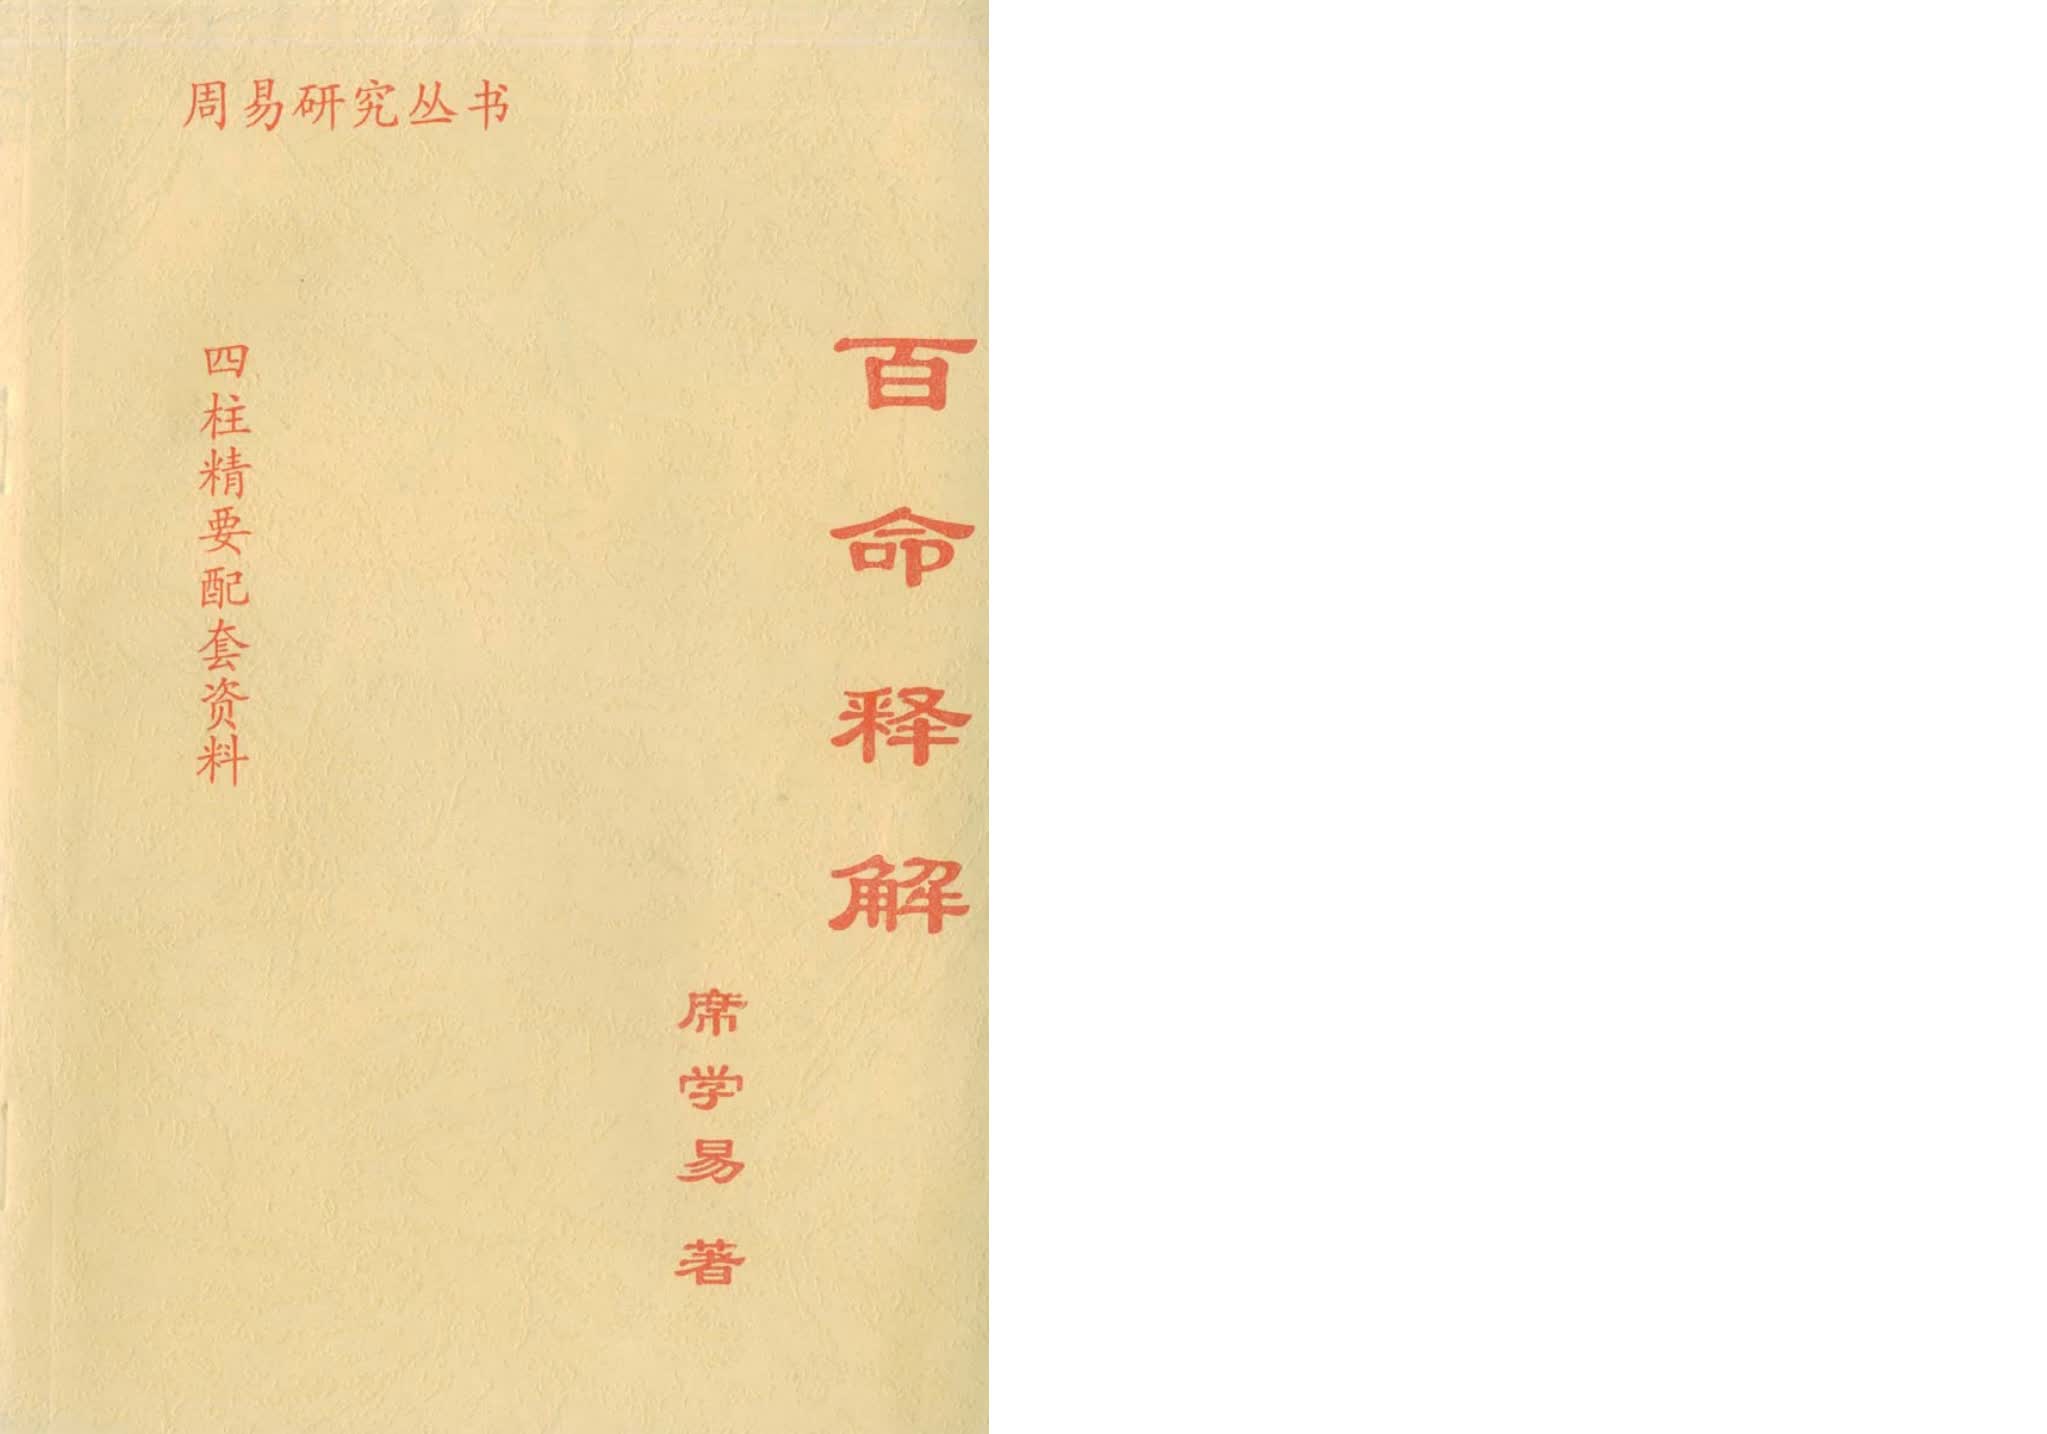 周易研究丛书
百命释解
四柱精要配套资料
席学易 著